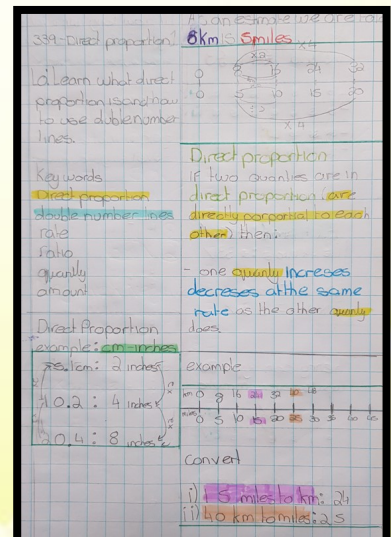 339-Direct proportion:
LO: Learn what direct
proportion is and how
to use duble number
lines.
Key words
Direct proportion
double number lines
rate
ratio
quantiy
amount
Direct Proportion
example: cm-inches
1cm: 2 inches
10.2 : 4 inches
20.4 : 8 inches
As an estimate we are
8km is 5miles
x4
x2
0 8 16 24 32
0 5 10 15 20
x4
Direct proportion
If two quanties are in
direct proportion (are
directly porportial to each
other) then:
- one quantiy increses
decreses at the same
rate as the other quantiy
does.
example
km 0 8 16 24 32 40 48
miles 0 5 10 15 20 25 30
convert
i) 15 miles to km: 24
ii) 40 km to miles: 25